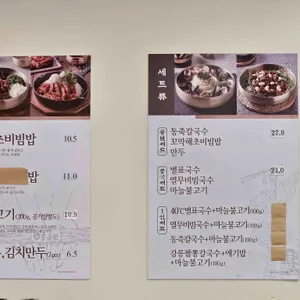 초비빔밥 10.5
밥 11.0
고기(200g, 공기밥별도) 10.9
, 김치만두(7pcs) 6.5
세트류
동죽칼국수 27.0
꼬막해초비빔밥
만두
별표국수 24.0
열무비빔국수
마늘불고기
1인세트
40℃별표국수+마늘불고기(100g)
열무비빔국수+마늘불고기(100g)
동죽칼국수+마늘불고기(100g)
강릉짬뽕칼국수+애기밥
+마늘불고기(100g)